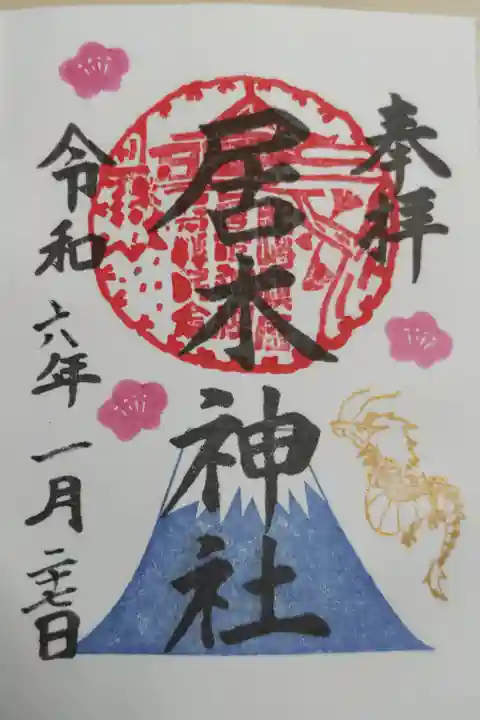 奉拝
居木神社
令和六年一月二十七日